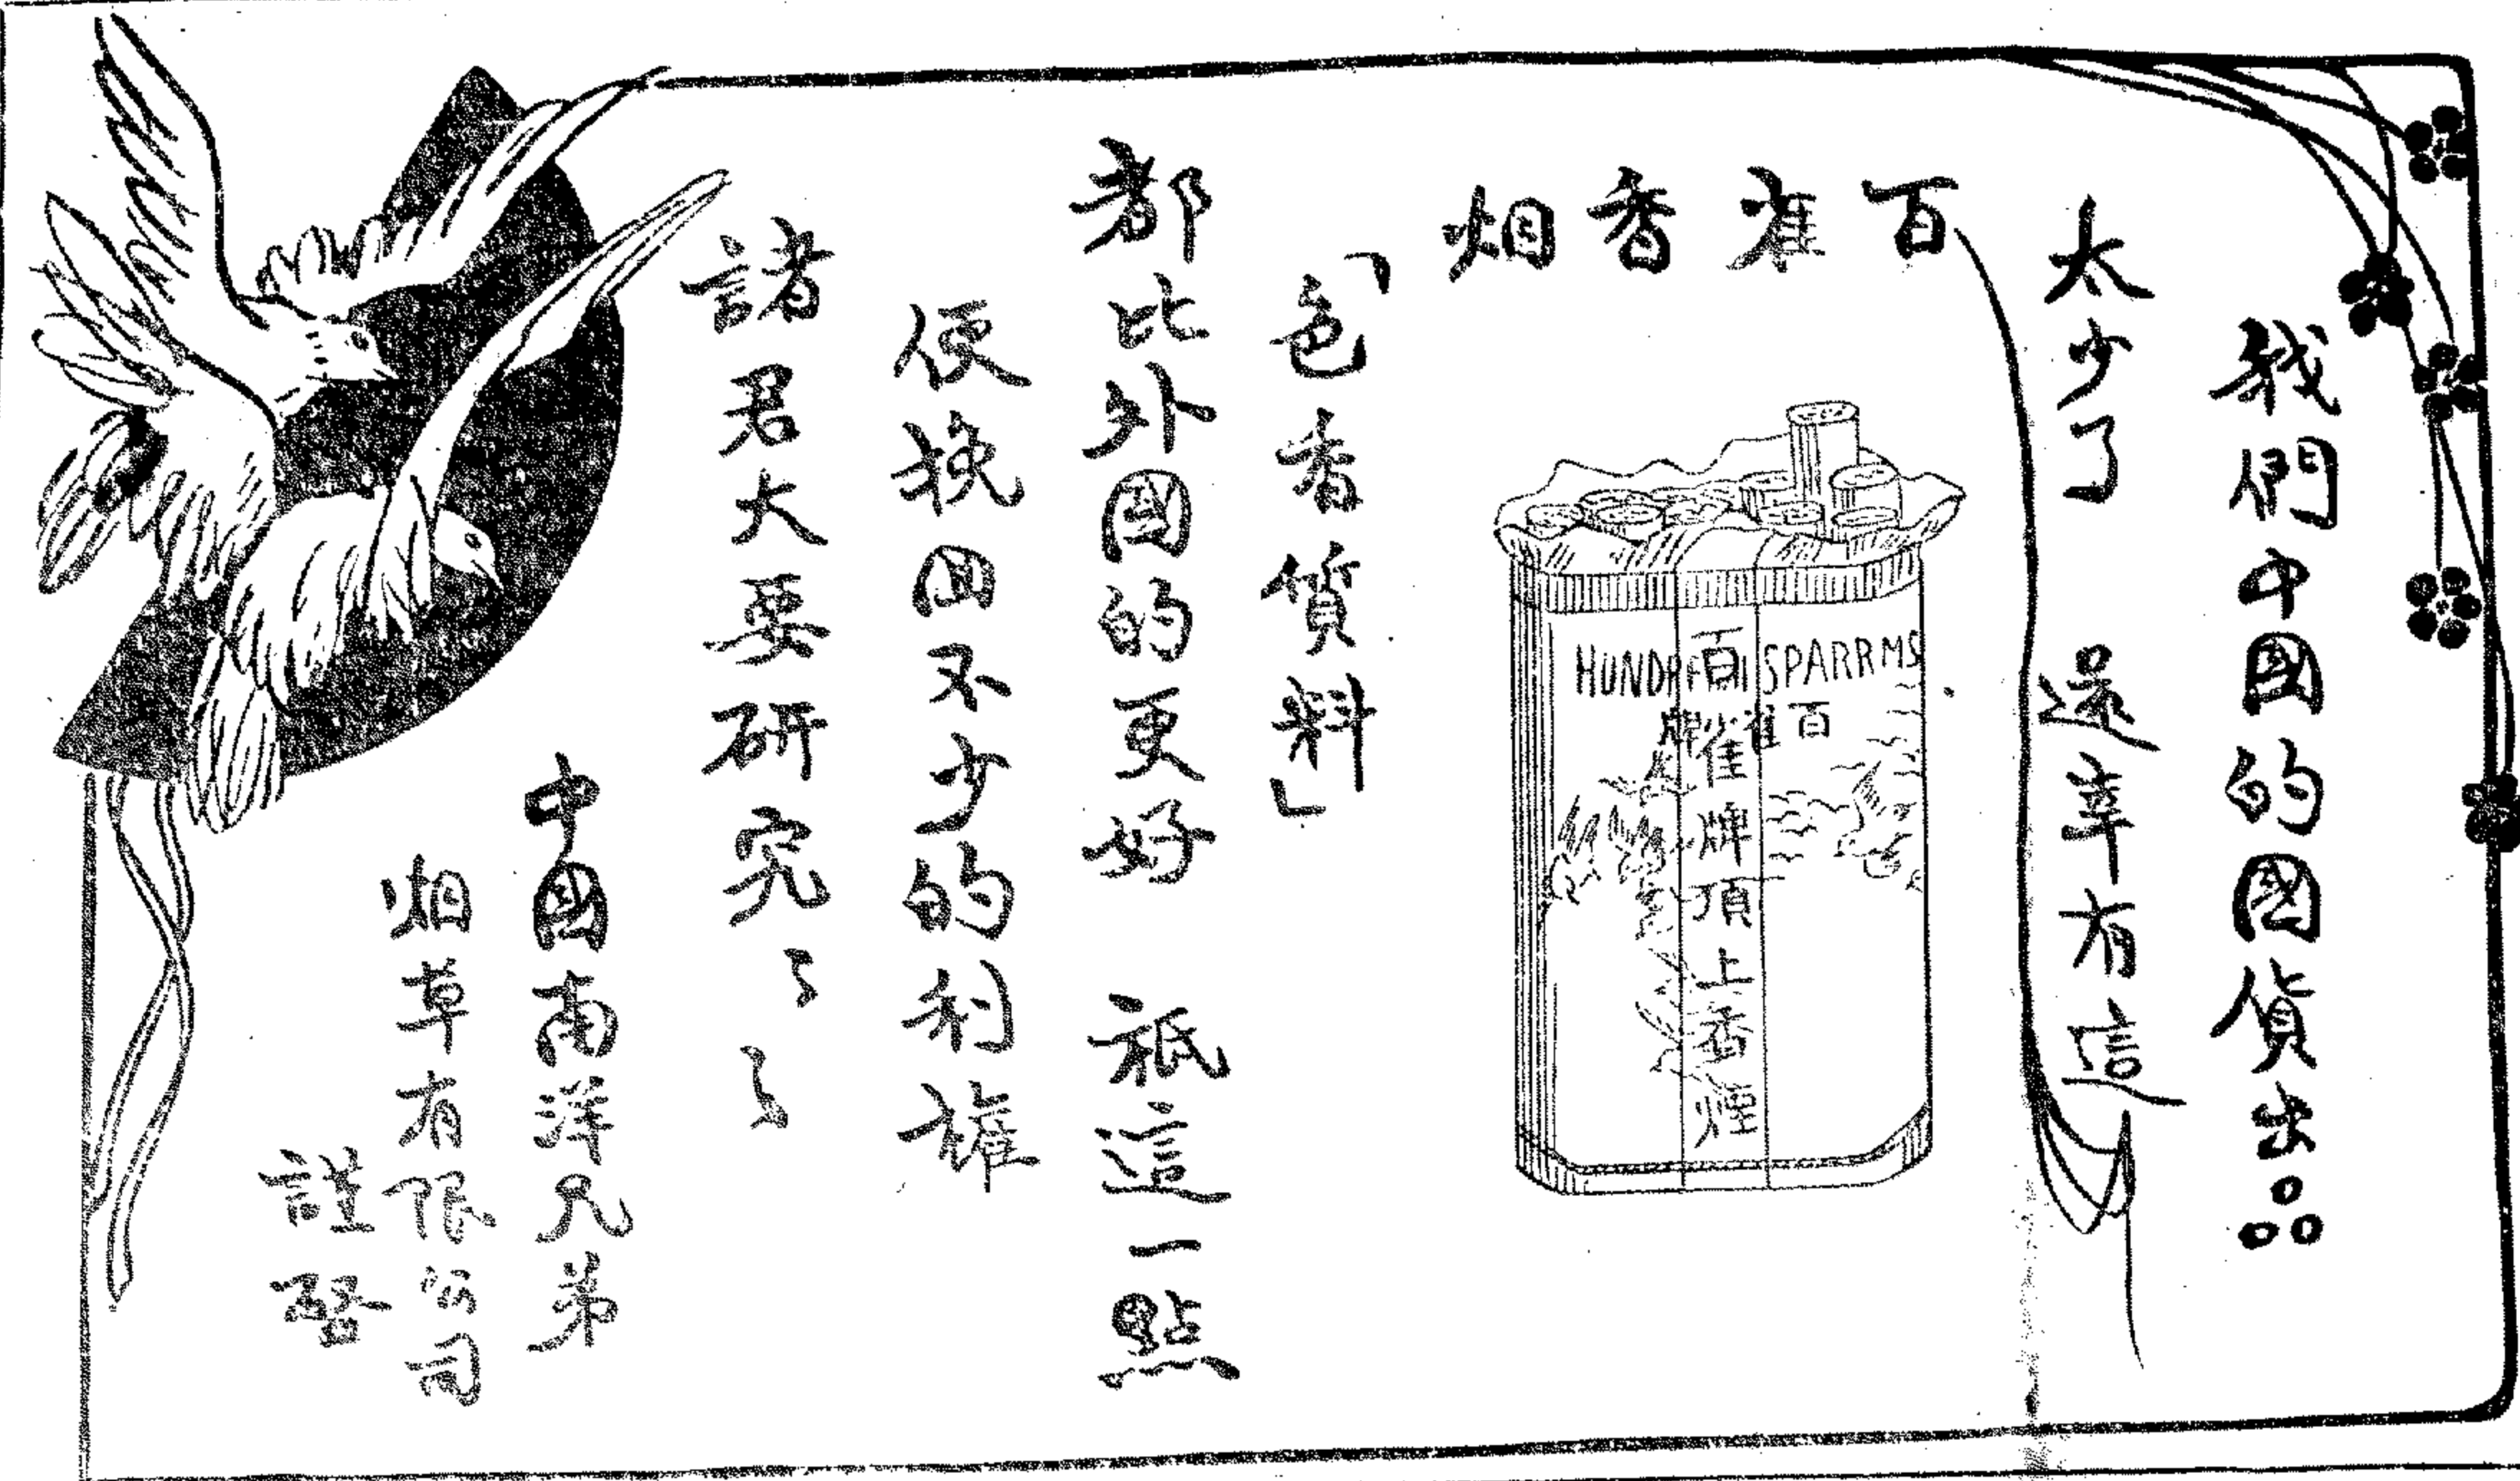 我們中國的國貨出品
太少了 還幸有這
百雀香烟
HUNDRED SPARRMS
百雀牌
百雀牌頂上香煙
「色香質料」
都比外國的更好 祇這一點
便挽回不少的利權
諸君大要研究〻〻
中國南洋兄弟
烟草有限公司
謹啓